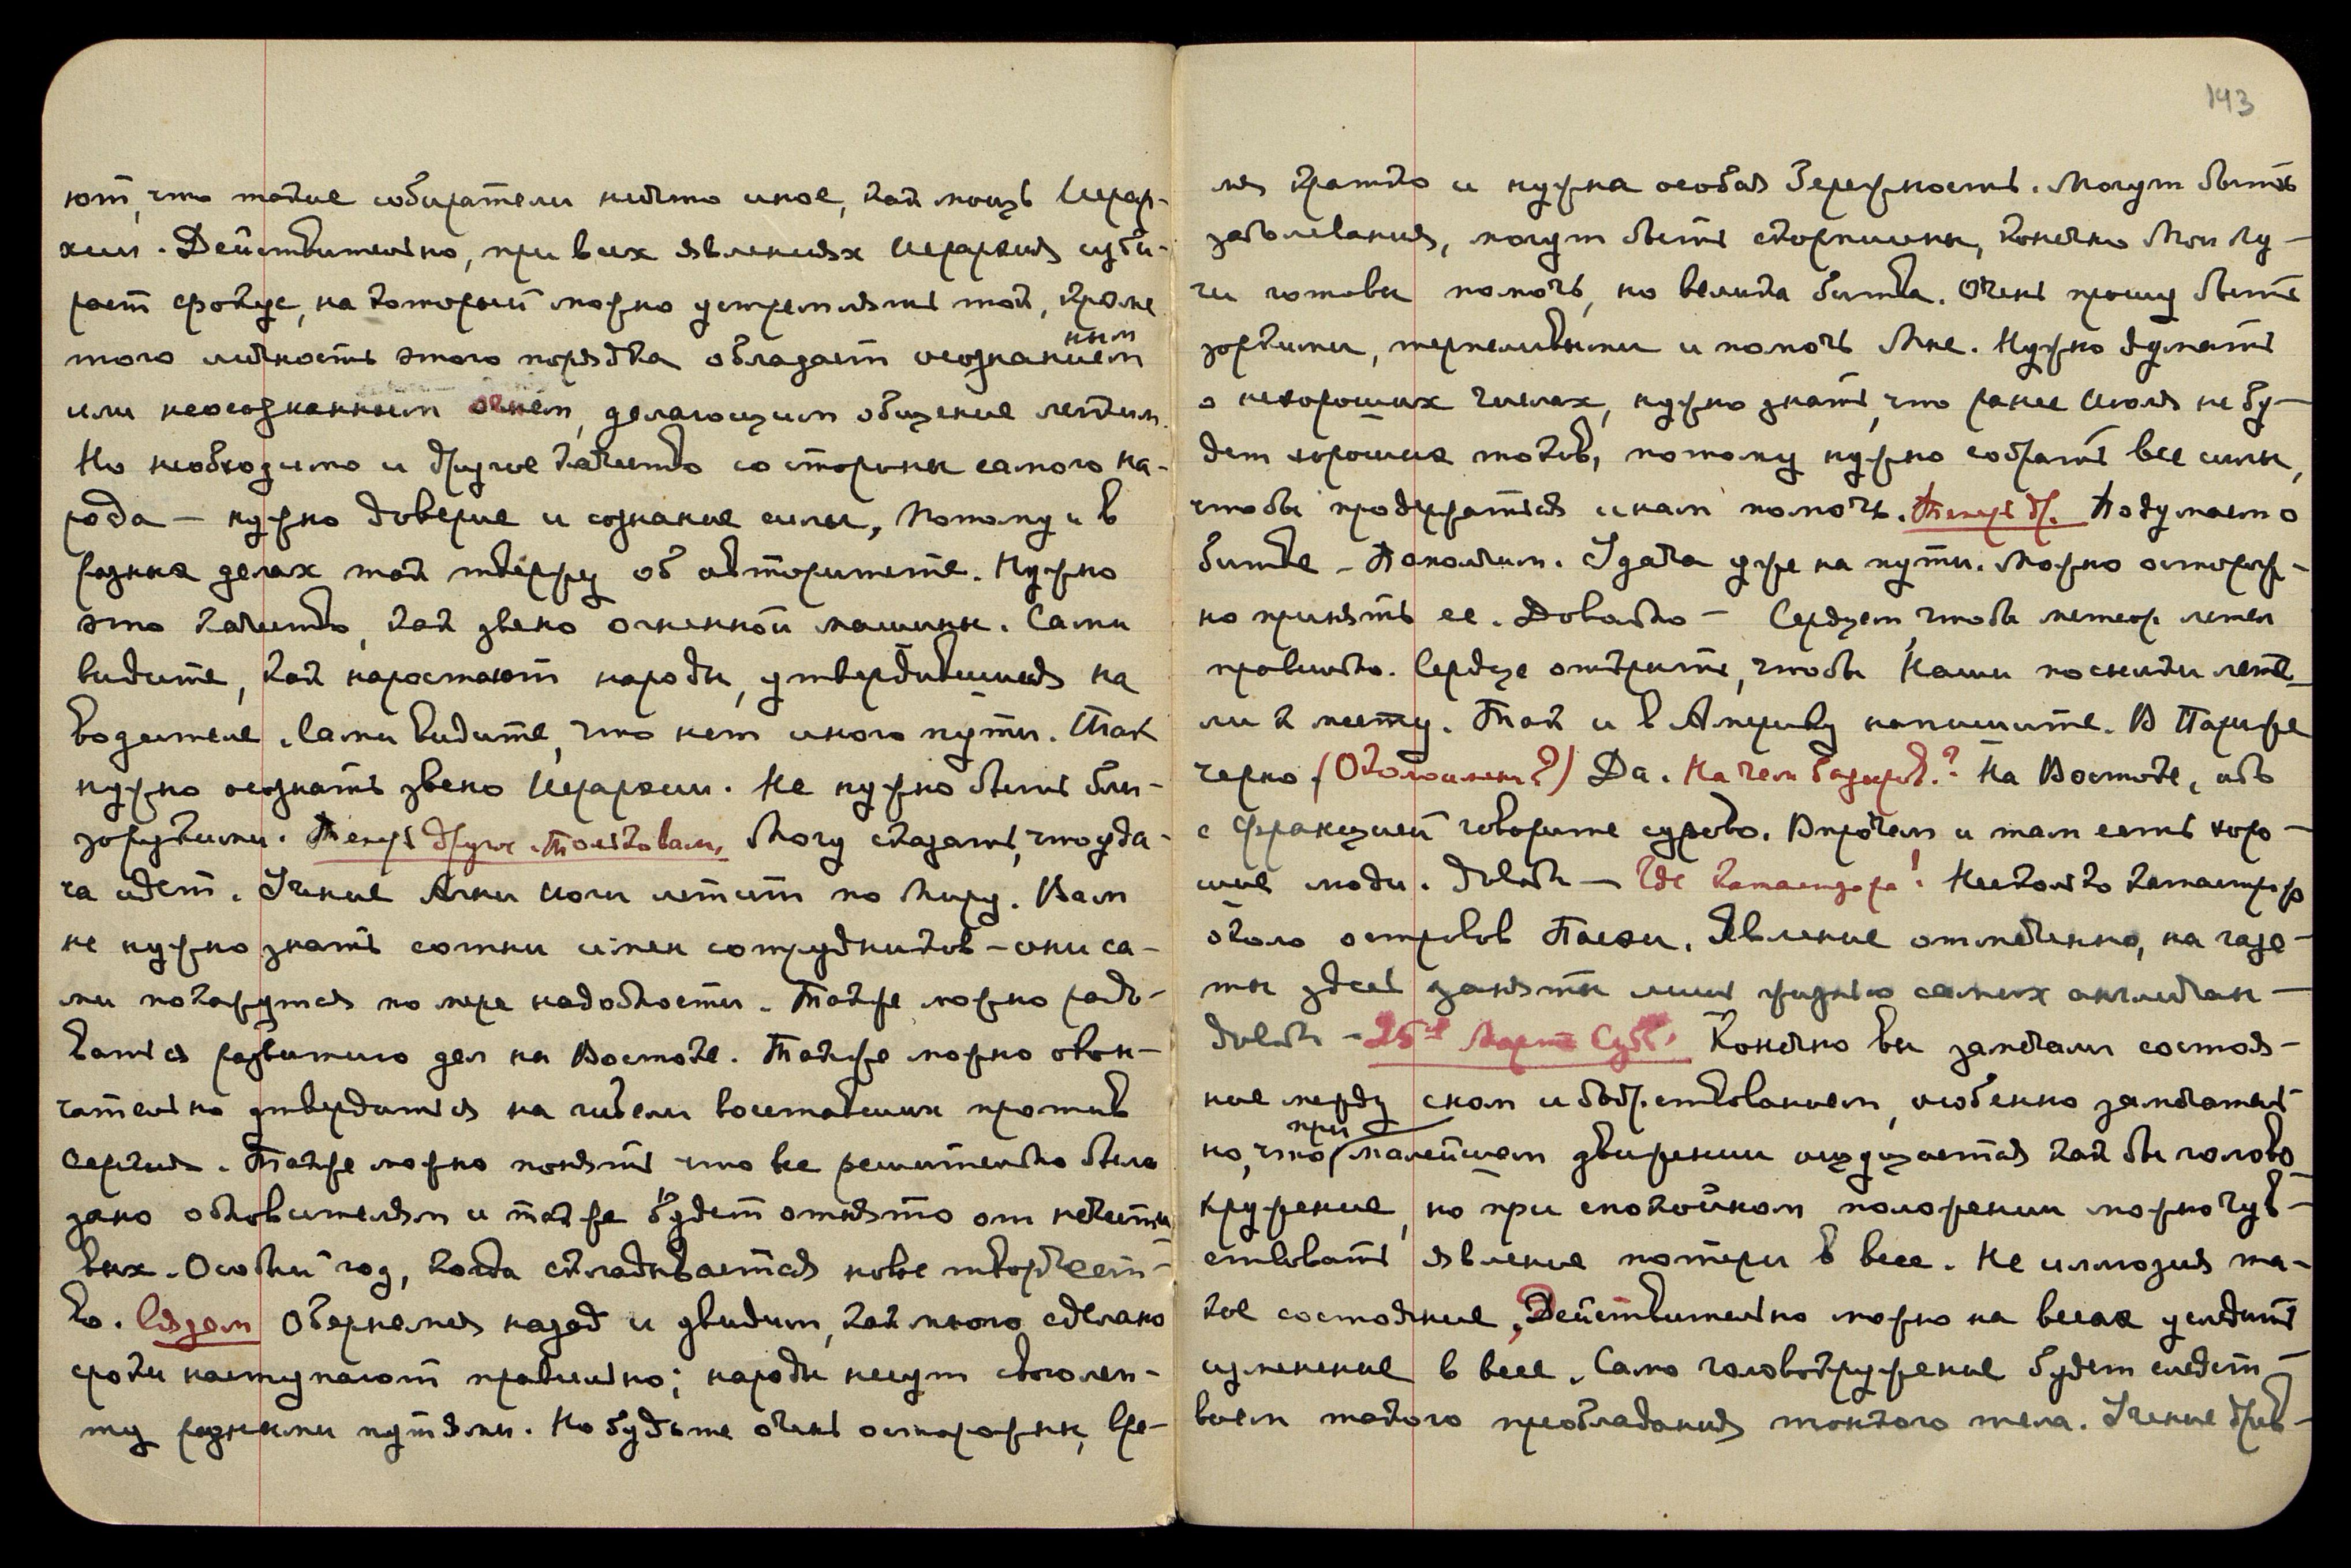 ют, что такие собиратели ничто иное, как мощь Иерар-
хии. Действительно, при всех явлениях Иерархия изби-
рает фокус, на который можно устремлять ток, кроме
того личность этого порядка обладает осознанием
ным
или неосознанным огнем, делающим общение легким.
Но необходимо и другое качество со стороны самого на-
рода – нужно доверие и сознание силы, Потому и в
разных делах так твержу об авторитете. Нужно
это качество, как звено огненной машины. Сами
видите, как нарастают народы, утвердившиеся на
водителе. Сами видите, что нет иного пути. Так
нужно осознать звено Иерархии. Не нужно быть бли-
зорукими. Теперь другое. Толковали. Могу сказать, что уда-
ча идет. Учение Агни Йоги летит по Миру. Вам
не нужно знать сотни имен сотрудников – они са-
ми покажутся по мере надобности. Также можно радо-
ваться развитию дел на Востоке. Также можно окон-
чательно утвердиться на гибели восставших против
Сергия. Также можно понять что все решительно было
дано обновителям и также будет отнято от нечести
вых. Особый год, когда складывается новое творчест-
во. Сядем Обернемся назад и увидим, как много сделано
сроки наступают правильно; народы несут свою леп-
ту разными путями. Но будьте очень осторожны, вре-
143
мя кратко и нужна особая бережность. Могут быть
заболевания, могут быть скорпионы, конечно Мои Лу-
чи готовы помочь, но велика битва. Очень прошу быть
зоркими, терпеливыми и помочь Мне. Нужно думать
о нехороших числах, нужно знать, что ранее Июля не бу-
дет хороших токов, потому нужно собрать все силы,
чтобы продержаться и нам помочь. Теперь др. Подумаем о
битве – Помолчим. Удача уже на пути. Можно осторож-
но принять ее. Довольно – Сердцем, чтобы метеор летел
правильно. Сердце открыть, чтобы Наши посылки лете-
ли к месту. Так и в Америку напишите. В Париже
черно. На чем базиров.? На Востоке, ибо
с Францией говорите сурово. Впрочем и там есть хоро-
шие люди. Довольн – Где катастрофа! Несколько катастроф
около островов Пасхи. Явление отмечено, но газе-
ты здесь заняты лишь жизнью самих англичан –
Довольн – 25ое Марта Субб. Конечно вы замечали состоя-
ние между сном и бодрствованием, особенно замечатель
но, что
при
малейшем движении ощущается как бы голово
кружение, но при спокойном положении можно чув-
ствовать явление потери в весе. Не иллюзия та-
кое состояние. Действительно можно на весах уследить
изменение в весе. Само головокружение будет следст-
вием такого преобладания тонкого тела. Учение древ-